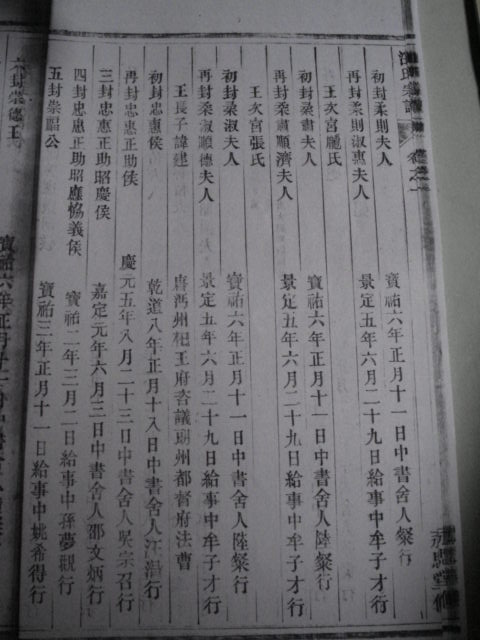 汪氏宗譜 卷之一
初封柔則夫人 寶祐六年正月十一日中書舍人粲行
再封柔則淑惠夫人 景定五年六月二十九日給事中牟子才行
王次宮龐氏
初封柔肅夫人 寶祐六年正月十一日中書舍人陸粲行
再封柔肅順濟夫人 景定五年六月二十九日給事中牟子才行
王次宮張氏
初封柔淑夫人 寶祐六年正月十一日中書舍人陸粲行
再封柔淑順德夫人 景定五年六月二十九日給事中牟子才行
王長子諱建 唐沔州杞王府咨議朗州都督府法曹
初封忠惠侯 乾道八年正月十八日中書舍人行
再封忠惠正助侯 慶元五年八月二十三日中書舍人吳宗召行
三封忠惠正助昭慶侯 嘉定元年六月三日中書舍人邵文炳行
四封忠惠正助昭應協義侯 寶祐二年三月二日給事中孫夢觀行
五封崇福公 寶祐三年正月十一日給事中姚希得行
六封崇德王 寶祐六年正月十一日中書舍人